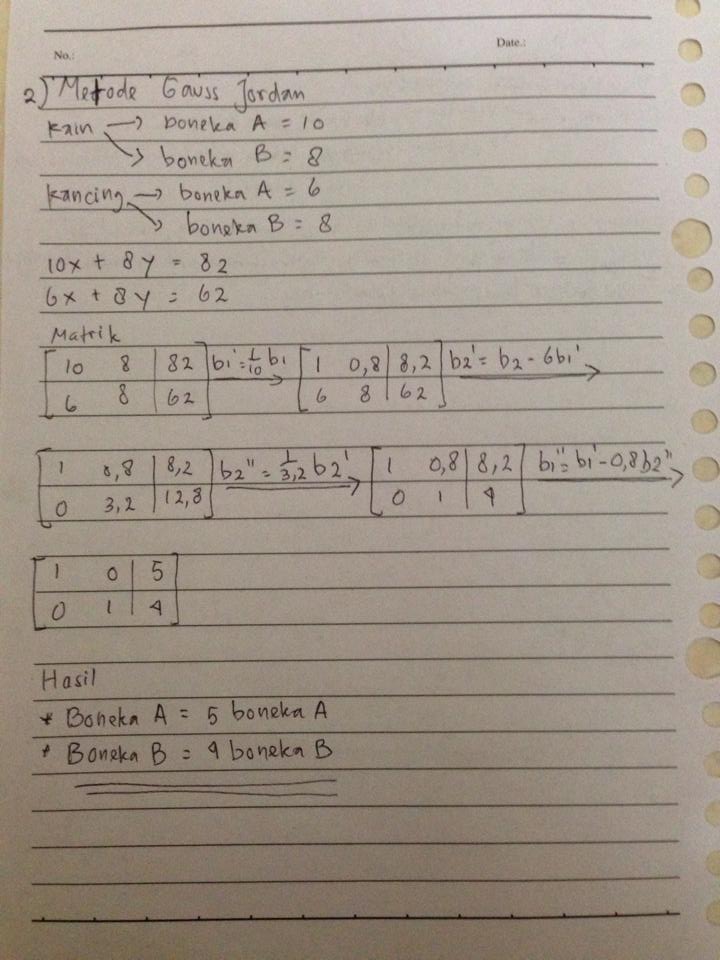 No.:
Date.:
2) Metode Gauss Jordan
kain → boneka A = 10
→ boneka B = 8
kancing → boneka A = 6
→ boneka B = 8
10x + 8y = 82
6x + 8y = 62
Matrik
[10 8 | 82] b1' = 1/10 b1 → [1 0,8 | 8,2] b2' = b2 - 6b1' →
[6 8 | 62] [6 8 | 62]
[1 0,8 | 8,2] b2" = 1/3,2 b2' → [1 0,8 | 8,2] b1" = b1' - 0,8b2" →
[0 3,2 | 12,8] [0 1 | 4]
[1 0 | 5]
[0 1 | 4]
Hasil
* Boneka A = 5 boneka A
* Boneka B = 4 boneka B